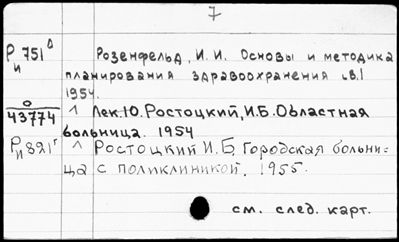 7
Р 751 д Розенфельд, И. И. Основы и методика
и планирования здравоохранения
1954.
0 ^ Лек. 10. Ростоцкий, И.Б. Областная
43774 больница. 1954
Ри 821 г ^ Ростоцкий И.Б. Городская больни-
ца с поликлиникой. 1955.
см. след. карт.